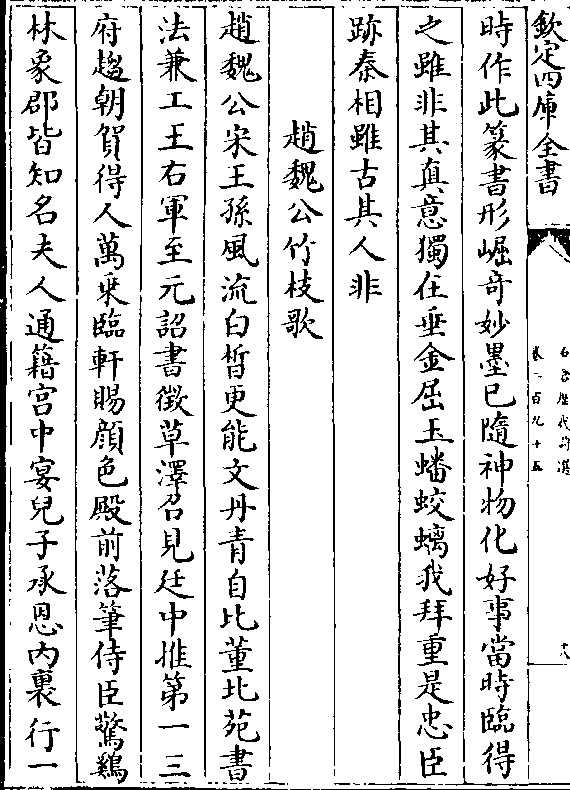 欽定四庫全書
石倉歷代詩選
卷一百九十五
十八
時作此篆書形崛奇妙墨已隨神物化好事當時臨得
之雖非其真意獨在垂金屈玉蟠蛟螭我拜重是忠臣
跡秦相雖古其人非
趙魏公竹枝歌
趙魏公宋王孫風流白晳更能文丹青自比董北苑書
法兼工王右軍至元詔書徵草澤召見廷中推第一三
府趨朝賀得人萬乘臨軒賜顔色殿前落筆侍臣驚鷄
林象郡皆知名夫人通籍宫中宴兒子承恩内裏行一